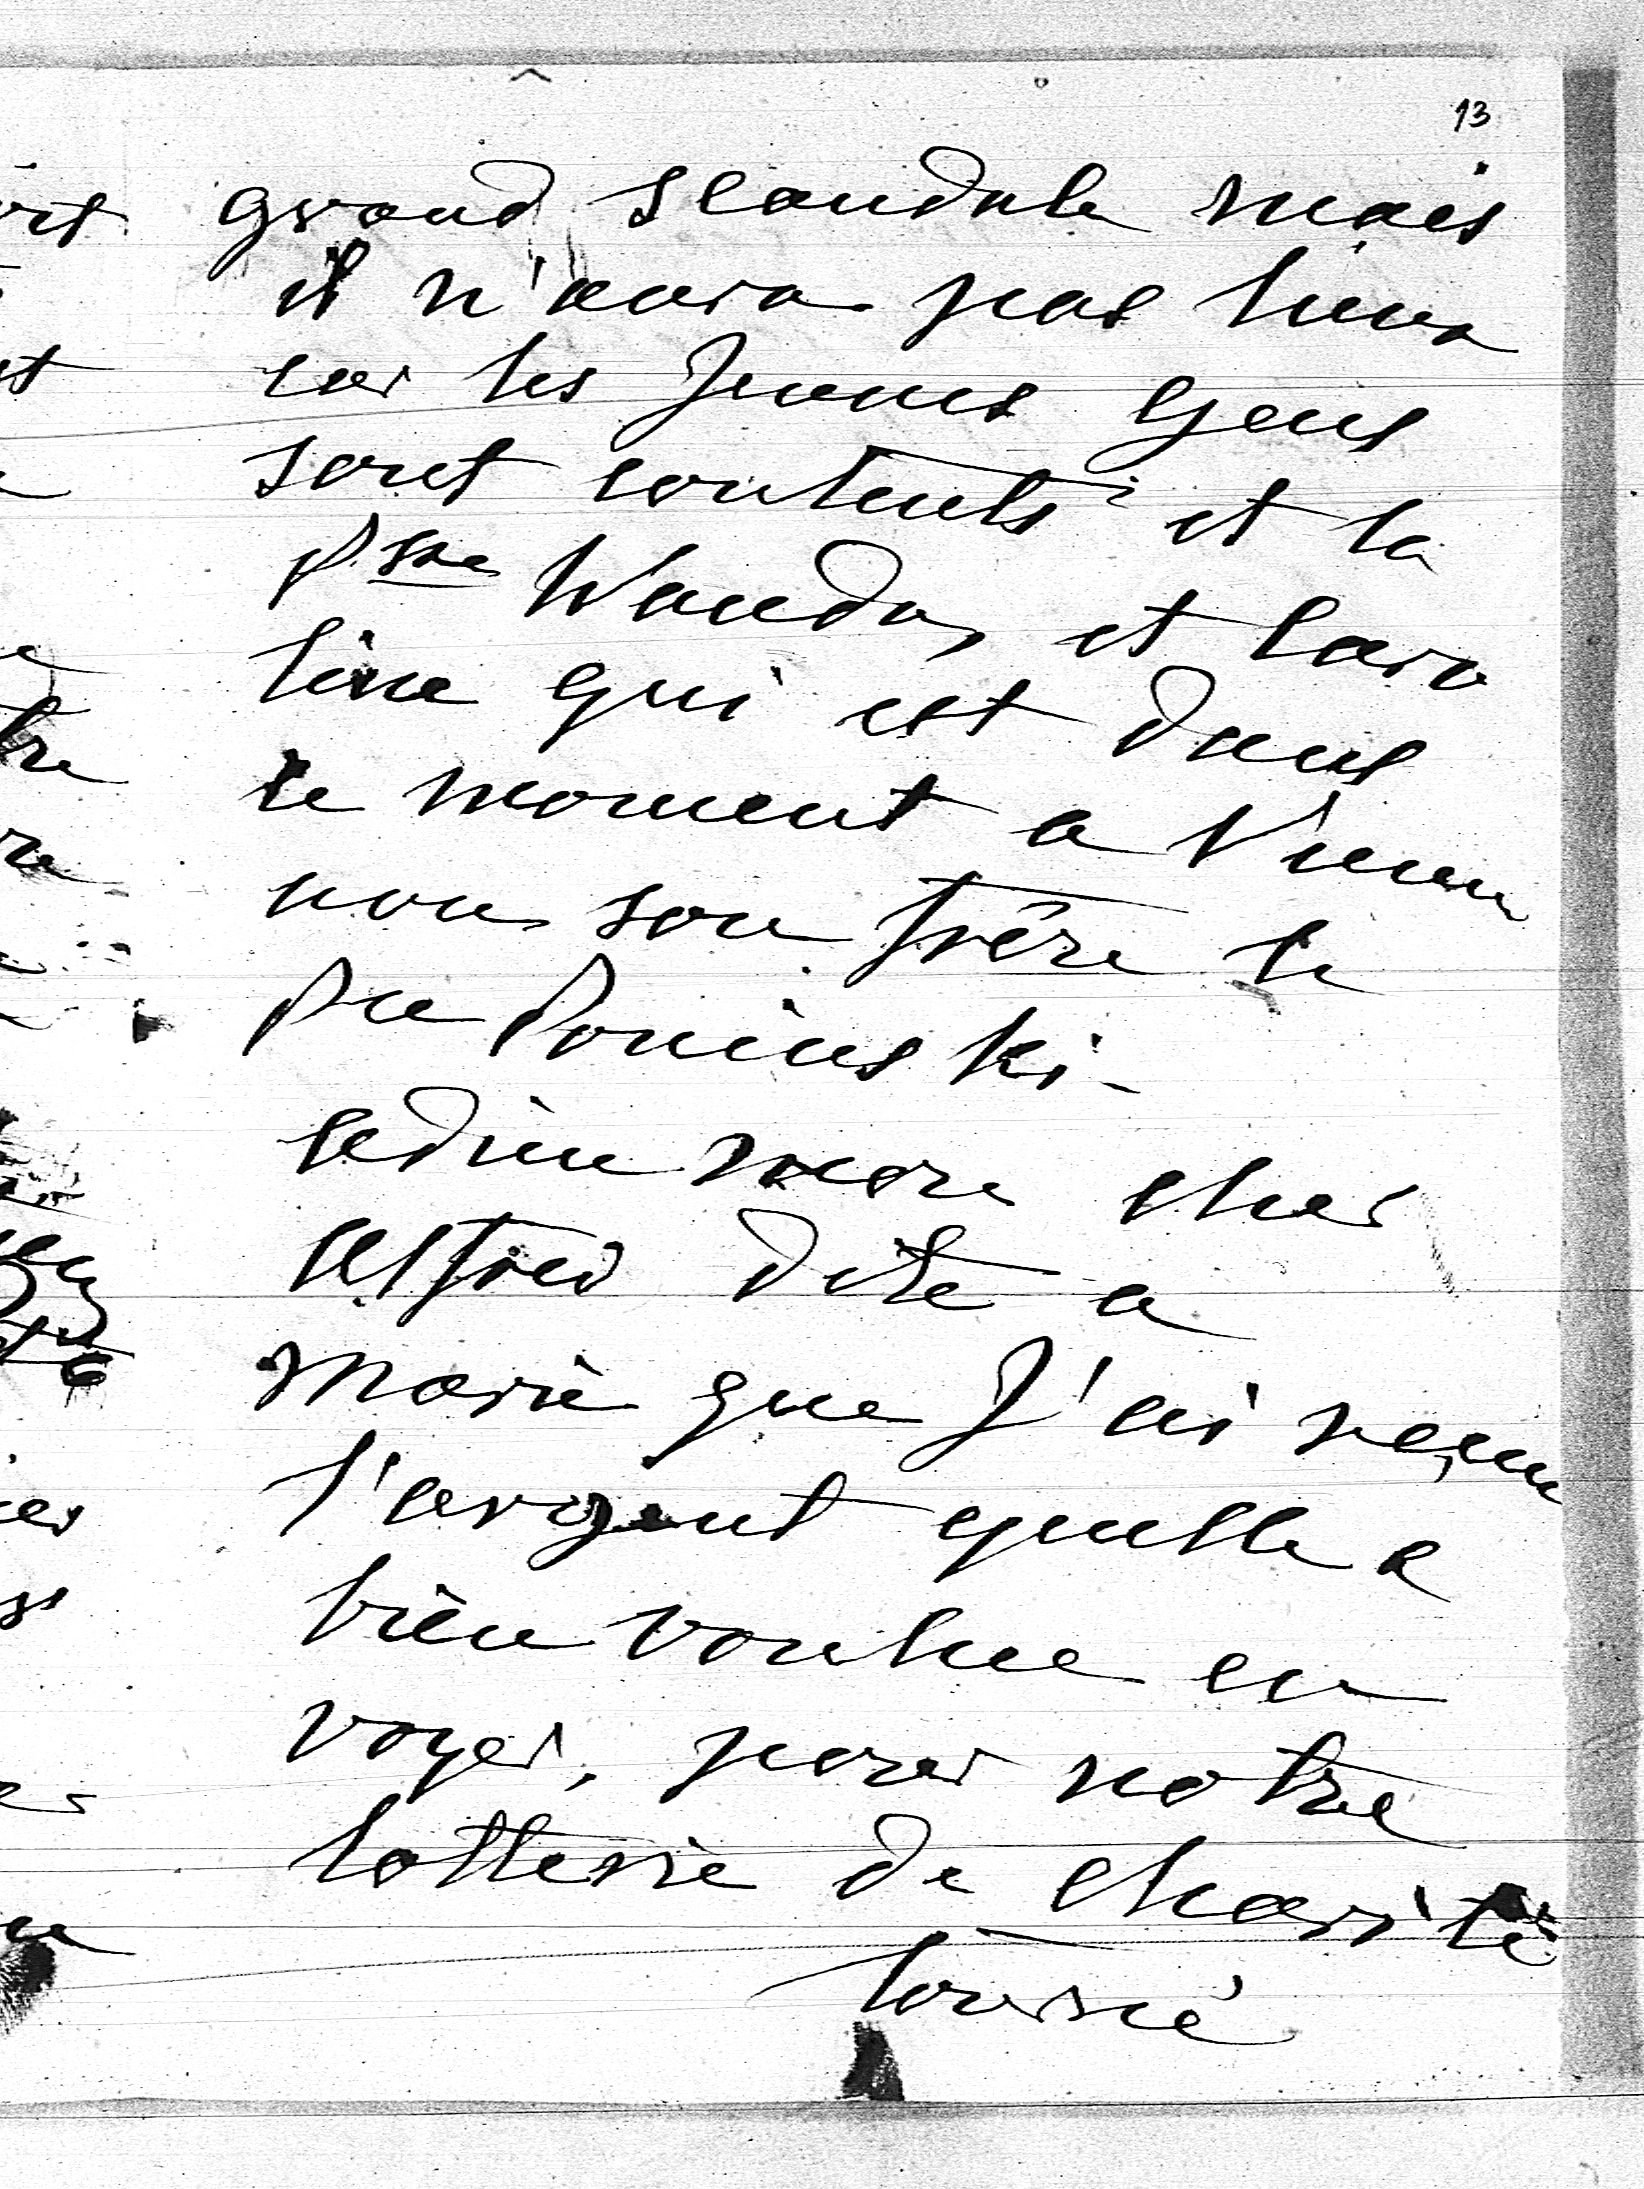 13
grand scandale mais
il n'aura pas lieux
car les Jeunes gens
sont contents et la
Psse Wanda, et Caro
line qui est dans
ce moment a Vienne
non son frère le
Pce Poninski -
adieu mon cher
Alfred dite a
Marie que J'ai reçue
l'argent quelle a
bien voulue en
voyer, pour notre
lotterie de charité